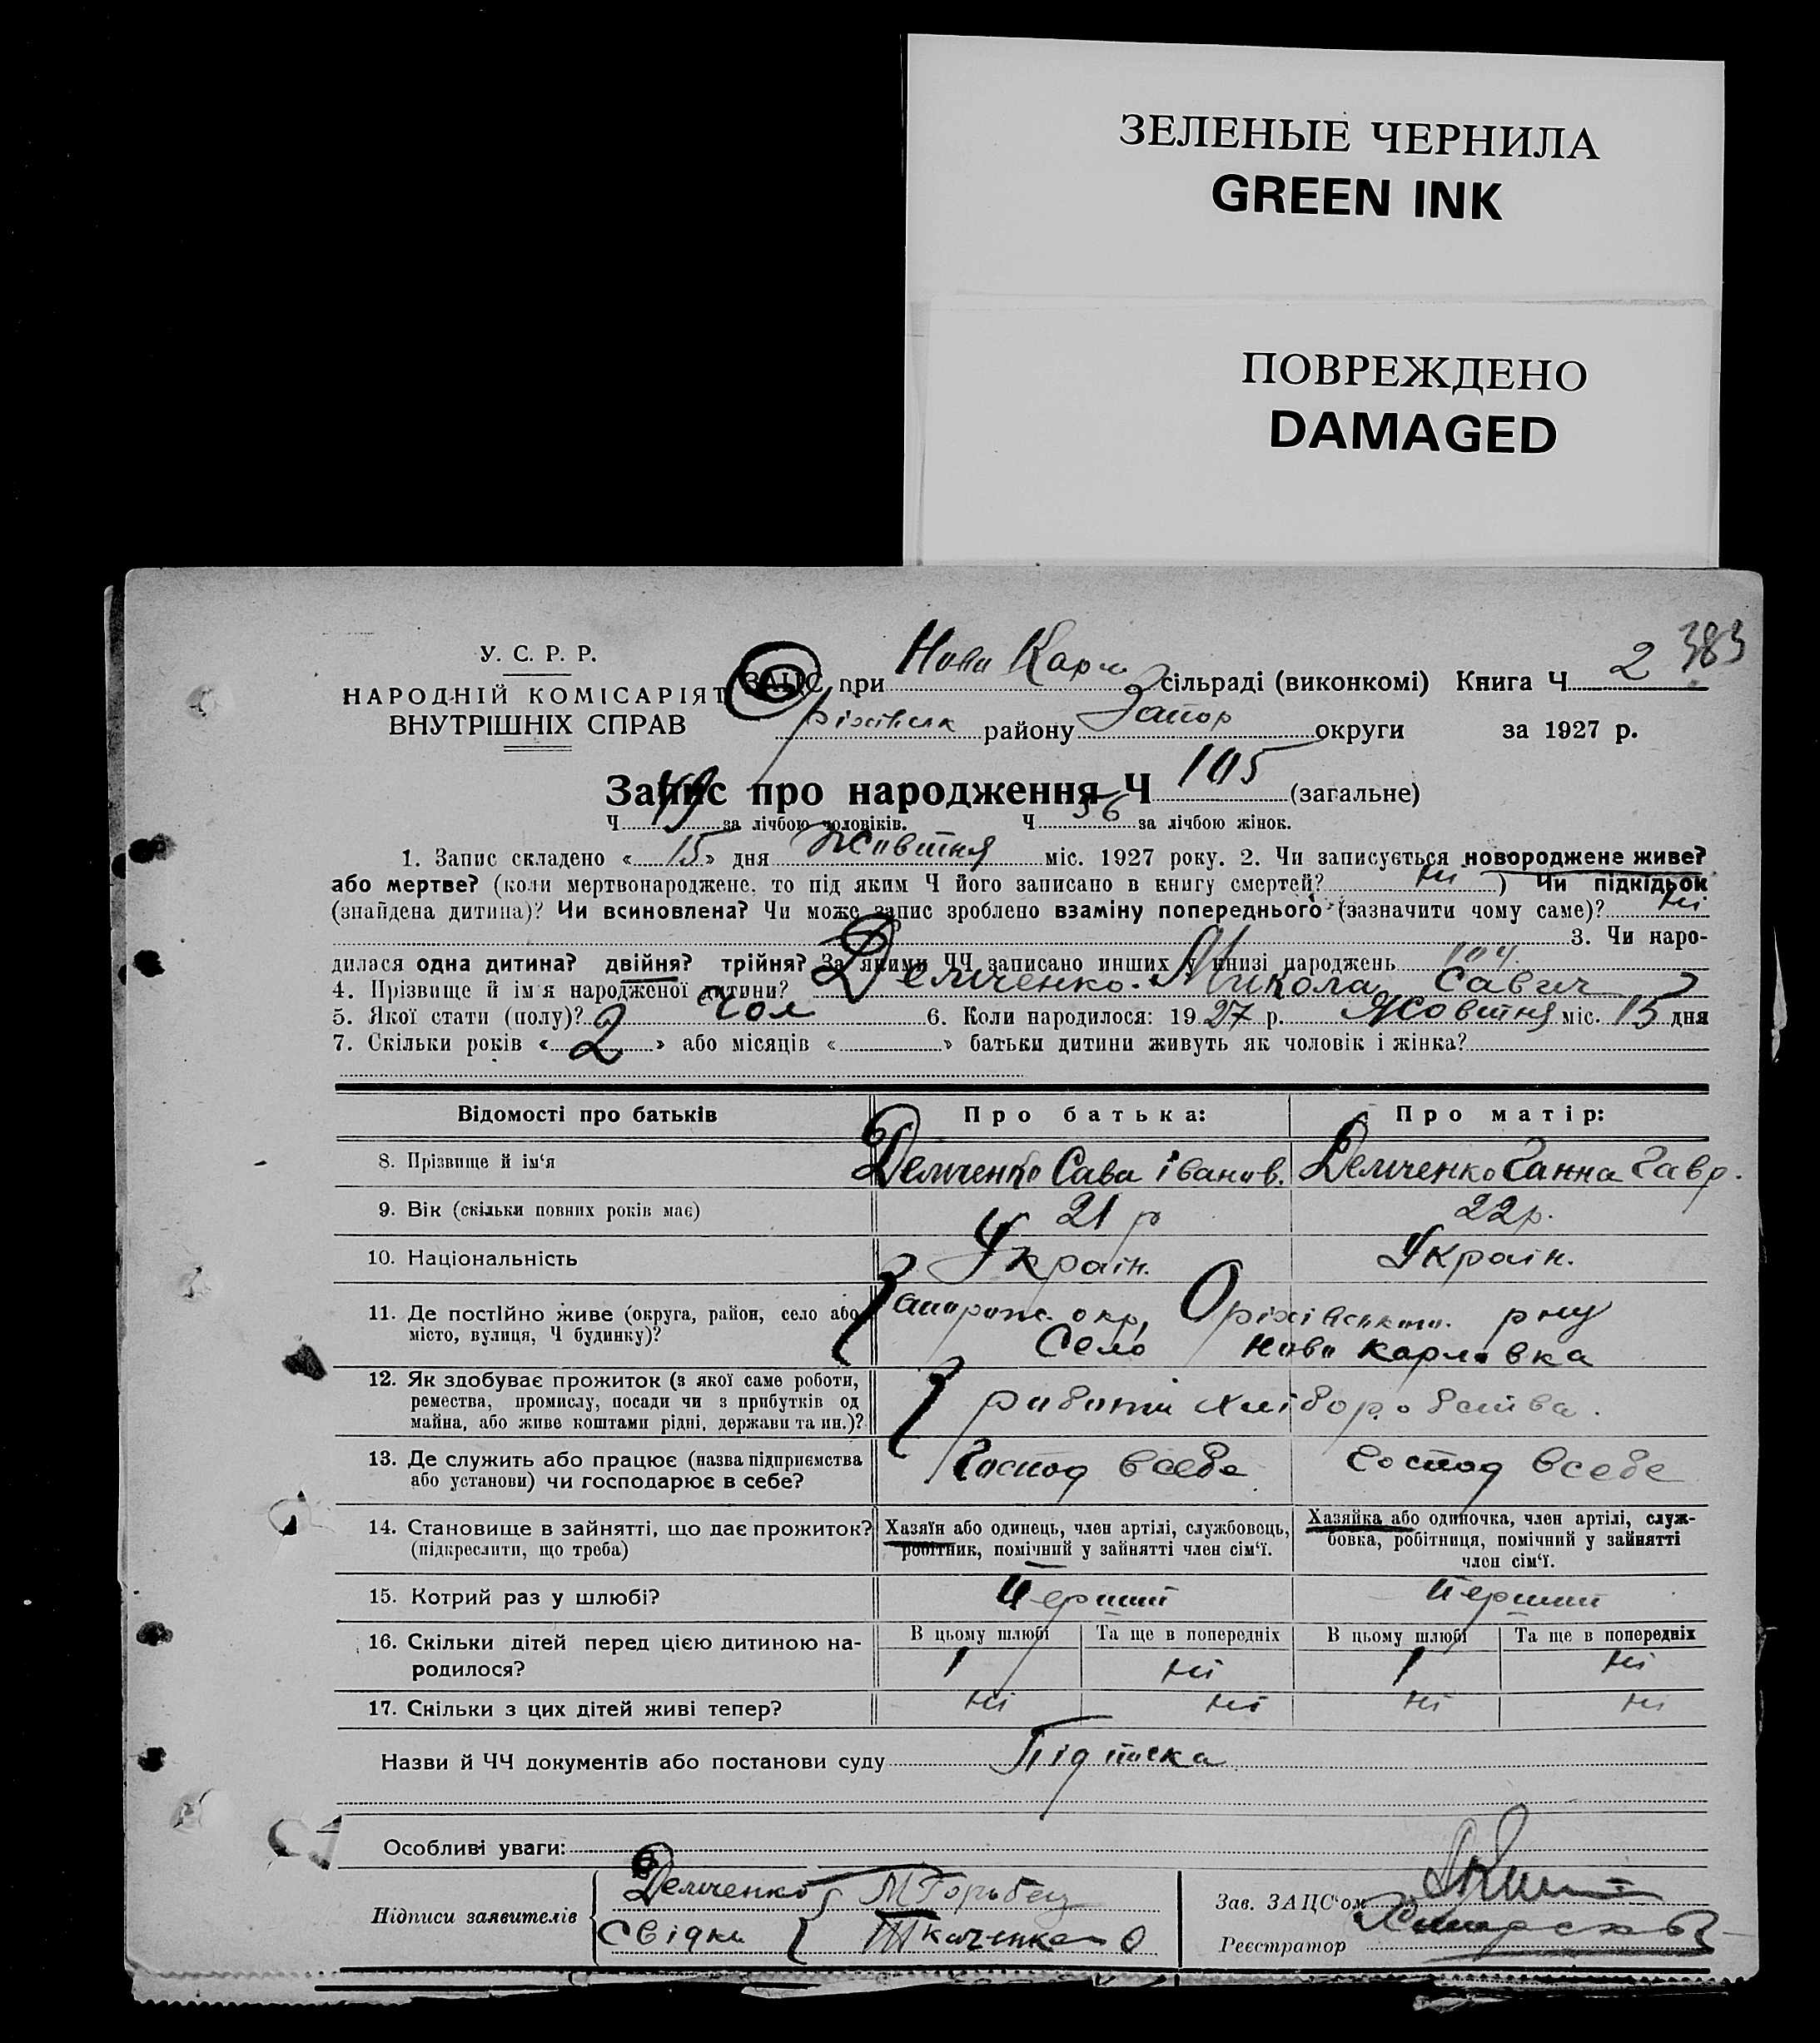 ЗЕЛЕНЫЕ ЧЕРНИЛА
GREEN INK
ПОВРЕЖДЕНО
DAMAGED
383
У. С. Р. Р.
НАРОДНІЙ КОМІСАРІЯТ
ВНУТРІШНІХ СПРАВ
ЗАЦС при Ново Карл сільраді (виконкомі) Книга Ч 2
Оріхівськ району Запор округи за 1927 р.
Запис про народження Ч 105 (загальне)
Ч 49 за лічбою чоловіків. Ч 56 за лічбою жінок.
1. Запис складено « 15 » дня Жовтня міс. 1927 року. 2. Чи записується новороджене живе?
або мертве? (коли мертвонароджене, то під яким Ч його записано в книгу смертей? ні ) Чи підкідьок
(знайдена дитина)? Чи всиновлена? Чи може запис зроблено взаміну попереднього (зазначити чому саме)? ні
3. Чи наро-
дилася одна дитина? двійня? трійня? За якими ЧЧ записано инших у книзі народжень 104.
4. Прізвище й ім'я народженої дитини? Демченко Микола Савич
5. Якої стати (полу)? чол 6. Коли народилося: 1927 р. Жовтня міс. 15 дня
7. Скільки років « 2 » або місяців « » батьки дитини живуть як чоловік і жінка?
Відомості про батьків Про батька: Про матір:
8. Прізвище й ім'я Демченко Сава Іванов. Демченко Ганна Гавр.
9. Вік (скільки повних років має) 21 р 22 р.
10. Національність Україн. Україн.
11. Де постійно живе (округа, район, село або Запорож. окр, Оріхівського р-ну
місто, вулиця, Ч будинку)? Село Ново Карловка
12. Як здобуває прожиток (з якої саме роботи,
ремества, промислу, посади чи з прибутків од работи хліборобства.
майна, або живе коштами рідні, держави та ин.)?
13. Де служить або працює (назва підприємства Господ в себе Господ в себе
або установи) чи господарює в себе?
14. Становище в зайнятті, що дає прожиток? Хазяїн або одинець, член артілі, службовець, Хазяйка або одиночка, член артілі, служ-
(підкреслити, що треба) робітник, помічний у зайнятті член сім'ї. бовка, робітниця, помічний у зайнятті
член сім'ї.
15. Котрий раз у шлюбі? Перший Перший
16. Скільки дітей перед цією дитиною на- В цьому шлюбі Та ще в попередніх В цьому шлюбі Та ще в попередніх
родилося? 1 ні 1 ні
17. Скільки з цих дітей живі тепер? ні ні ні ні
Назви й ЧЧ документів або постанови суду Підписка
Особливі уваги:
Підписи заявителів Демченко М Горбец
Свідки Ткаченко
Зав. ЗАЦС'ом
Реєстратор